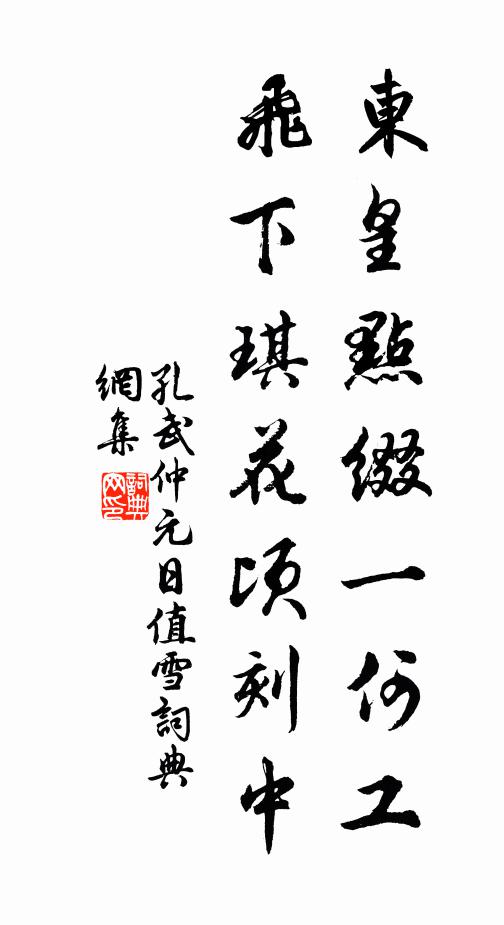 東皇點綴一何工
飛下琪花頃刻中
孔武仲元日值雪詞典
網集
詞典网印